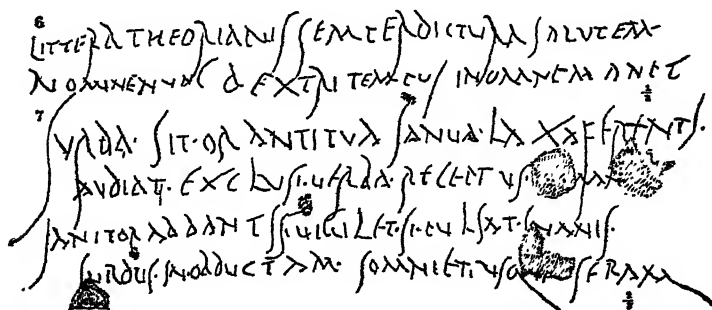 6 LITTERA THEORIANIS SEMPER DICTURA SALUTEM
NOMINE NUNC DEXTRI TEMPUS IN OMNE MANET
7 SURDA · SIT · ORANTI TUA IANUA · LAXA FERENTI ·
AUDIAT · EXCLUSI · VERBA · RECEPTUS · AMANS
IANITOR AD DANTIS · VIGILET · SI PULSAT · INANIS ·
SURDUS · IN OBDUCTAM · SOMNIET USQUE SERAM